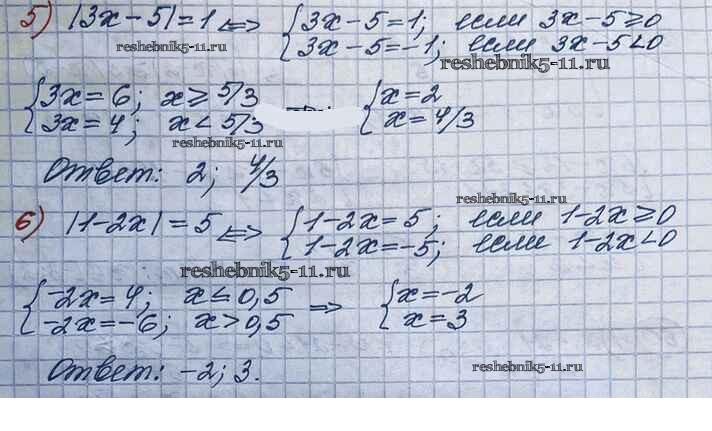 5) |3x-5|=1 <=> { 3x-5=1; если 3x-5≥0
3x-5=-1; если 3x-5<0
reshebnik5-11.ru
reshebnik5-11.ru
{ 3x=6; x≥5/3 { x=2
3x=4; x<5/3 x=4/3
reshebnik5-11.ru
Ответ: 2; 4/3
reshebnik5-11.ru
6) |1-2x|=5 <=> { 1-2x=5; если 1-2x≥0
1-2x=-5; если 1-2x<0
reshebnik5-11.ru
{ -2x=4; x≤0,5 => { x=-2
-2x=-6; x>0,5 x=3
Ответ: -2; 3.
reshebnik5-11.ru